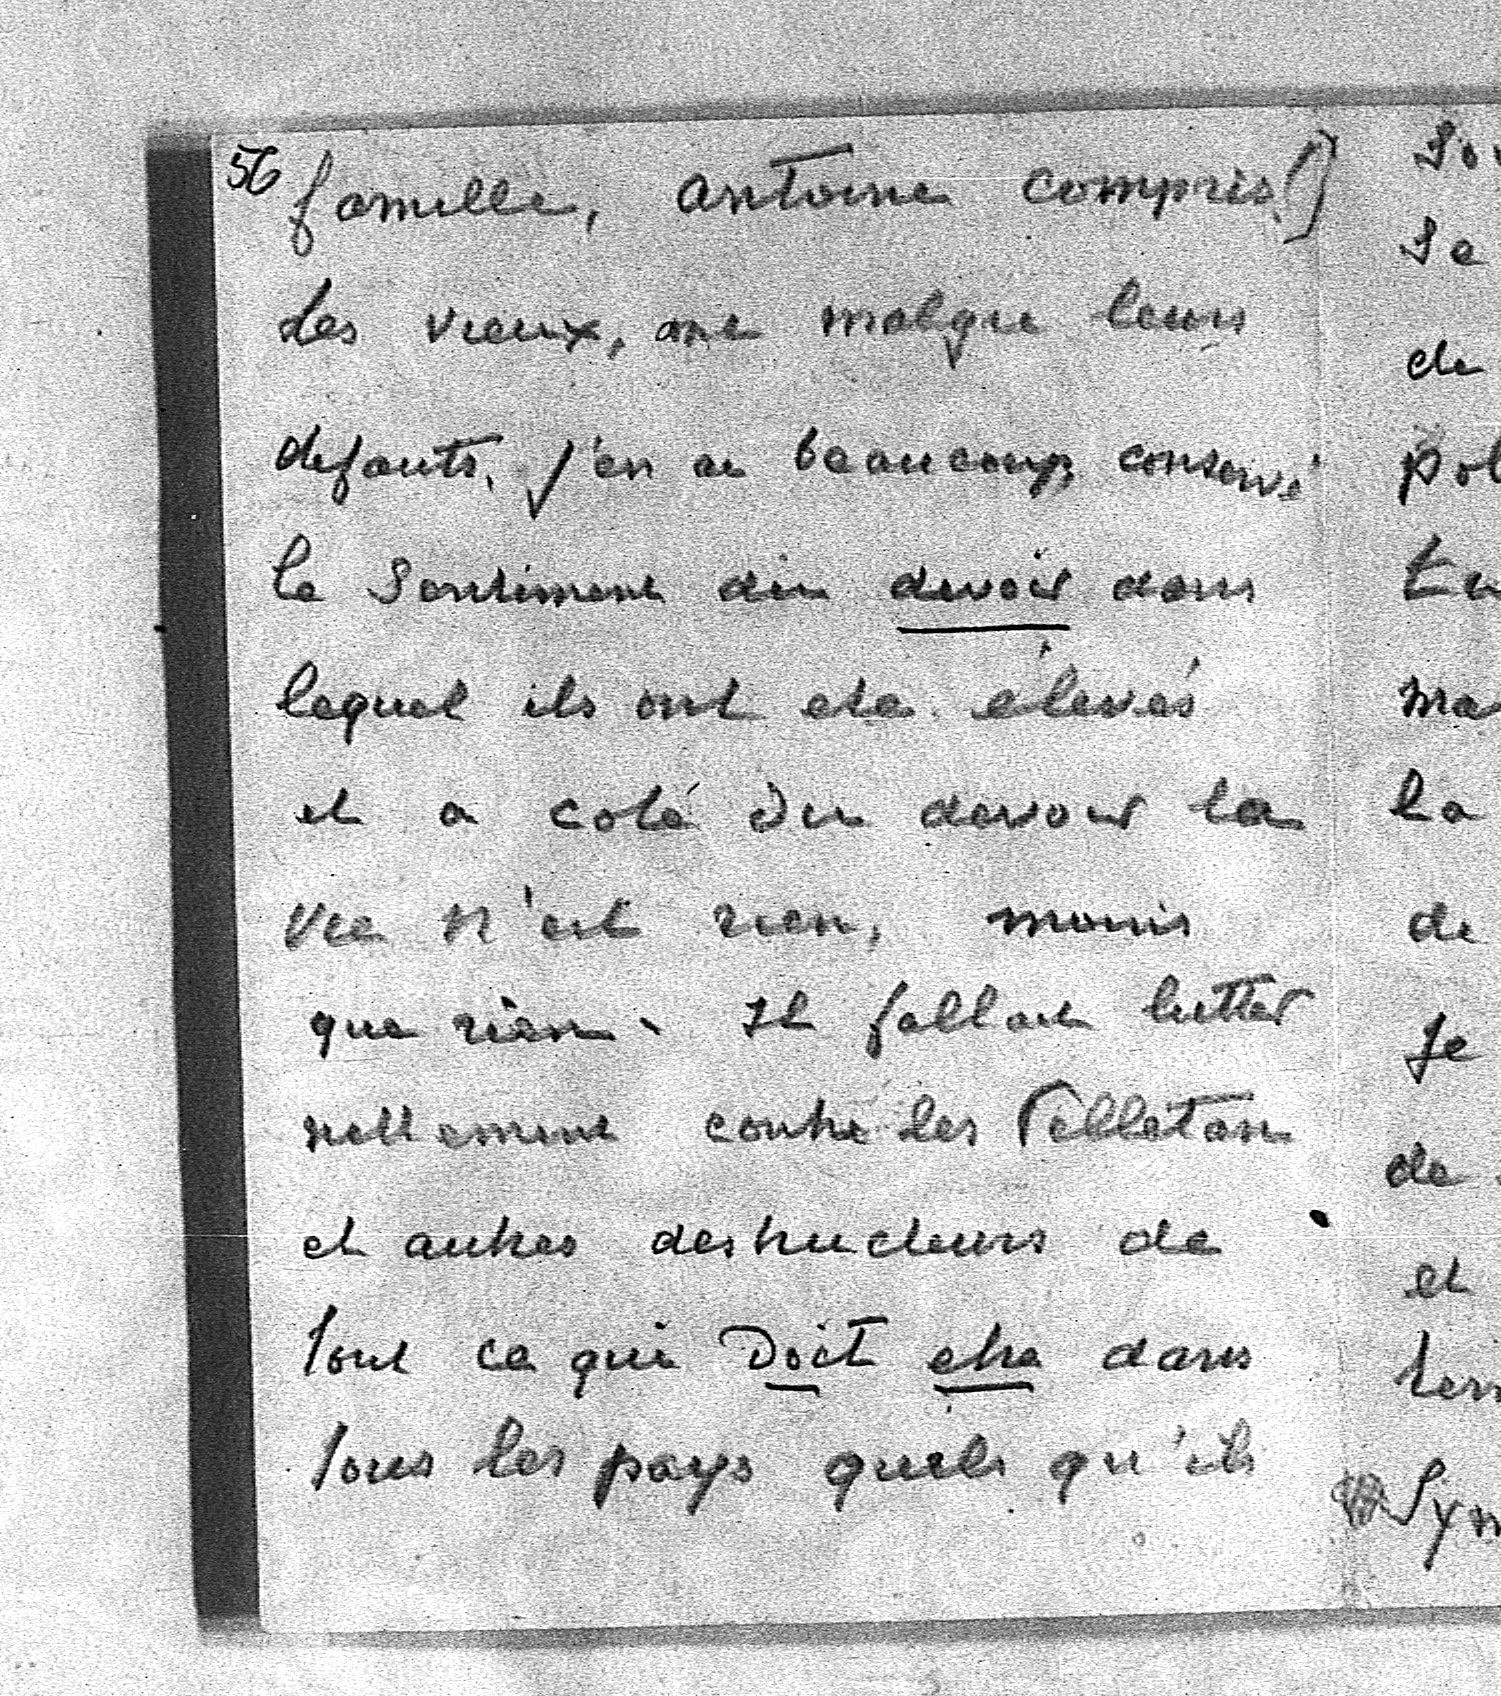 56 famille, Antoine compris)]
des vieux, ont malgré leurs
defauts, j'en ai beaucoup, conservé
le Sentiment du devoir dans
lequel ils ont ete élevés
et a coté du devoir la
vie n'est rien, moins
que rien. Il fallait lutter
nettement contre les Pelletan
et autres destructeurs de
tout ce qui Doit etre dans
tous les pays quels qu'ils
Se
de
la
de
Je
de
et